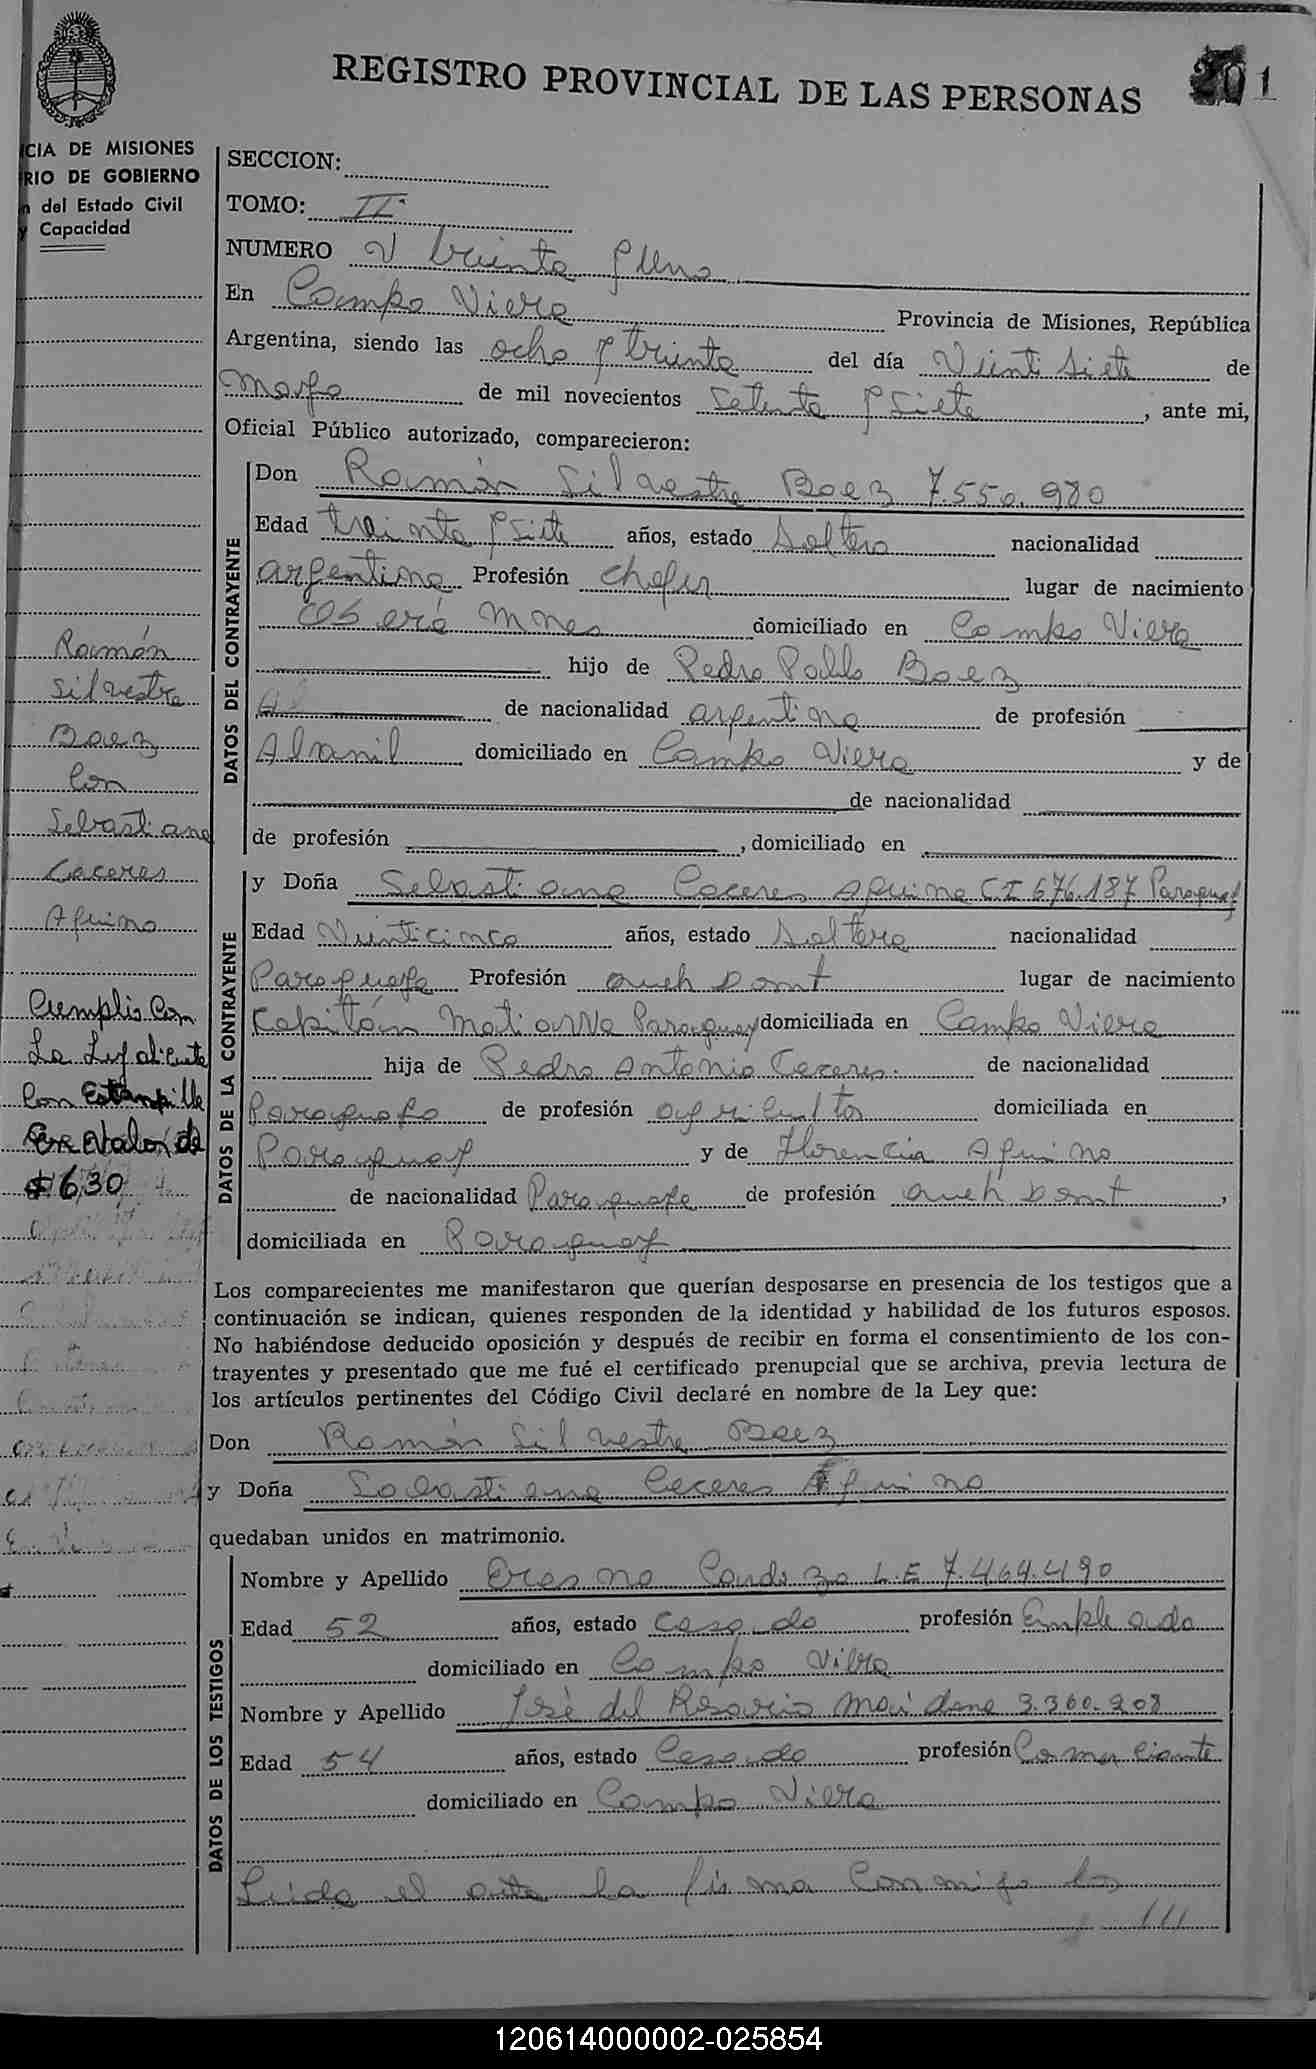 REGISTRO PROVINCIAL DE LAS PERSONAS
201
CIA DE MISIONES
RIO DE GOBIERNO
n del Estado Civil
y Capacidad
SECCION:
TOMO: II
NUMERO V treinta y Uno
En Campo Viera Provincia de Misiones, República
Argentina, siendo las ocho y treinta del día Vienti siete de
mayo de mil novecientos setenta y siete, ante mi,
Oficial Público autorizado, comparecieron:
DATOS DEL CONTRAYENTE
Don Ramón Silvestre Baez 7.550.980
Edad treinta y siete años, estado Soltero nacionalidad
argentina Profesión chofer lugar de nacimiento
Oberá Mnes domiciliado en Campo Viera
hijo de Pedro Pablo Baez
de nacionalidad argentina de profesión
Albanil domiciliado en Campo Viera y de
de nacionalidad
de profesión , domiciliado en
DATOS DE LA CONTRAYENTE
y Doña Sebastiana Caceres Aquino C.I 676.187 Paraguay
Edad Vienticinco años, estado Soltera nacionalidad
Paraguaya Profesión queh domt lugar de nacimiento
Capitán Paraguay domiciliada en Campo Viera
hija de Pedro Antonio Caceres. de nacionalidad
Paraguayo de profesión agricultor domiciliada en
Paraguay y de Florencia Aquino
de nacionalidad Paraguaya de profesión queh domt,
domiciliada en Paraguay
Los comparecientes me manifestaron que querían desposarse en presencia de los testigos que a
continuación se indican, quienes responden de la identidad y habilidad de los futuros esposos.
No habiéndose deducido oposición y después de recibir en forma el consentimiento de los con-
trayentes y presentado que me fué el certificado prenupcial que se archiva, previa lectura de
los artículos pertinentes del Código Civil declaré en nombre de la Ley que:
Don Ramón Silvestre Baez
y Doña Sebastiana Caceres Aquino
quedaban unidos en matrimonio.
DATOS DE LOS TESTIGOS
Nombre y Apellido L.E 7.464.490
Edad 52 años, estado casado profesión Empleado
domiciliado en Campo Viera
Nombre y Apellido José del Rosario Maidana 3.360.208
Edad 54 años, estado Casado profesión Comerciante
domiciliado en Campo Viera
Leida el acta la firma conmigo los
///
Ramón
Silvestre
Baez
Con
Sebastiana
Caceres
Aquino
Cumplio Con
La Ley
Con Estampilla
Valor de
$630
120614000002-025854